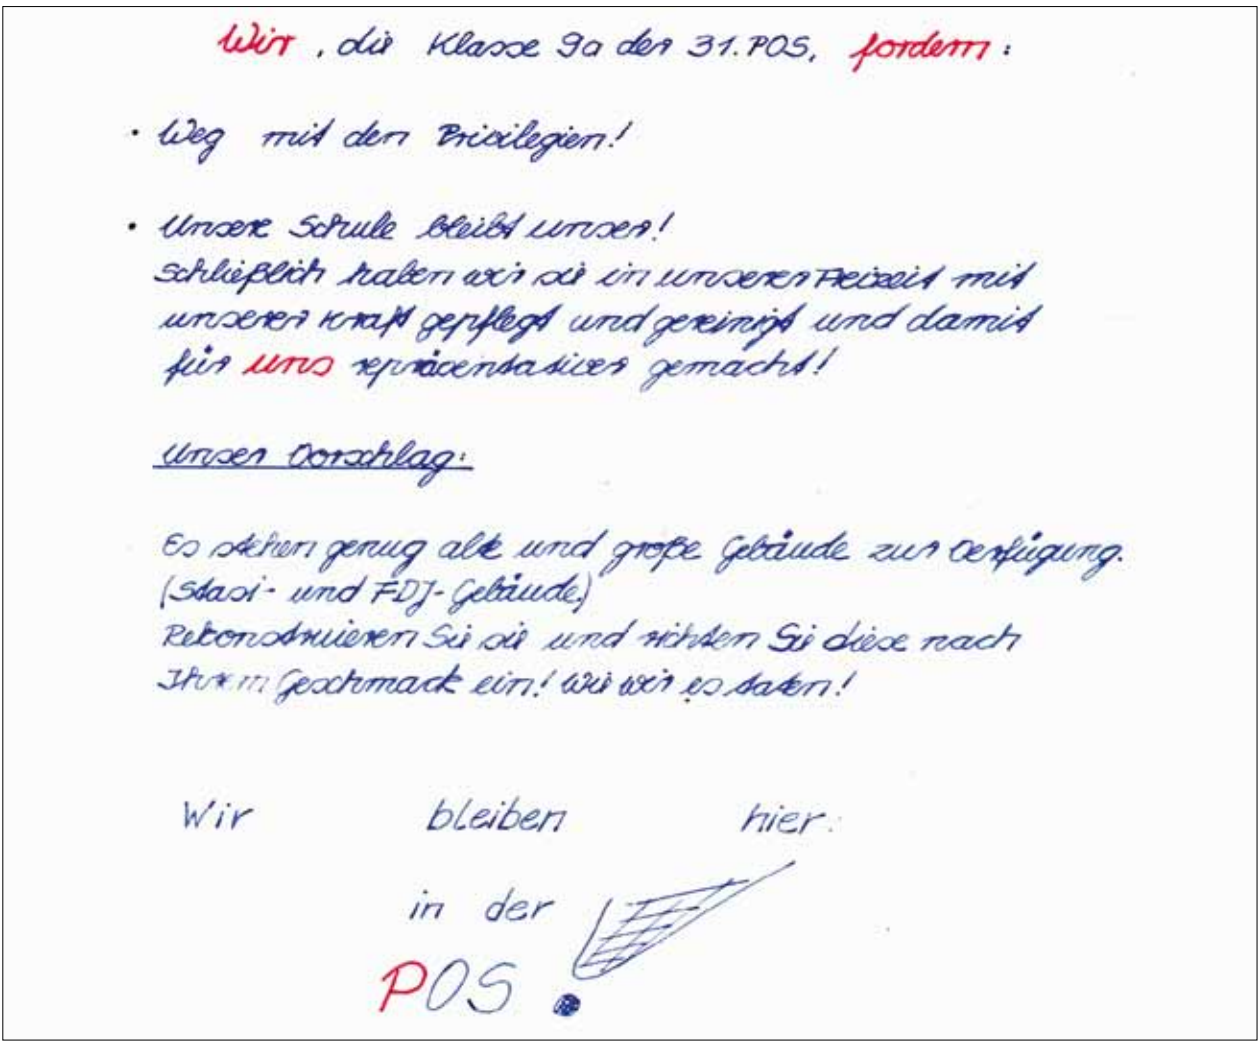 Wir, die Klasse 9a der 31. POS, fordern:
• Weg mit den Privilegien!
• Unsere Schule bleibt unser!
Schließlich haben wir sie in unserer Freizeit mit
unserer Kraft gepflegt und gereinigt und damit
für uns repräsentativer gemacht!
Unser Vorschlag:
Es stehen genug alte und große Gebäude zur Verfügung.
(Stasi- und FDJ-Gebäude)
Rekonstruieren Sie sie und richten Sie diese nach
Ihrem Geschmack ein! Wie wir es taten!
Wir bleiben hier:
in der
POS!